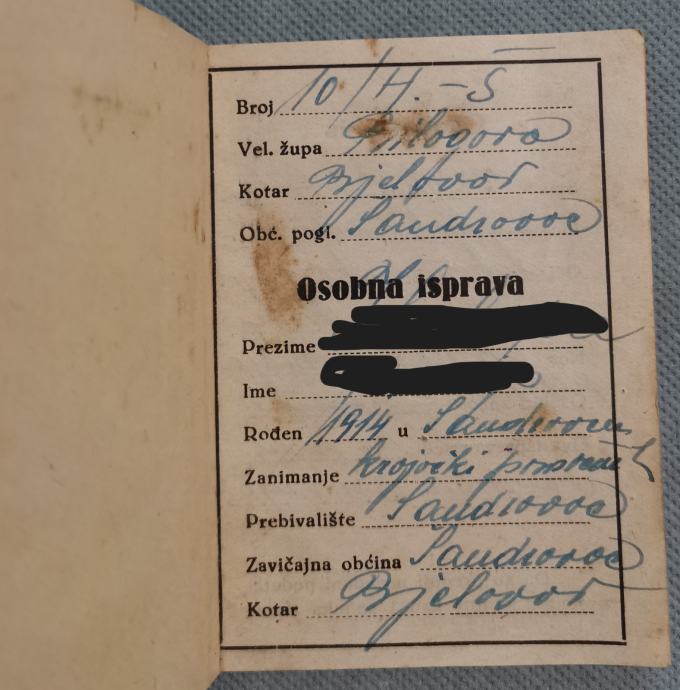 Broj 10/H. - Š
Vel. župa Bilogora
Kotar Bjelovar
Obć. pogl. Sandrovac
Osobna isprava
Prezime
Ime
Rođen 1914 u Sandrovcu
Zanimanje krojački
Prebivalište Sandrovac
Zavičajna obćina Sandrovac
Kotar Bjelovar